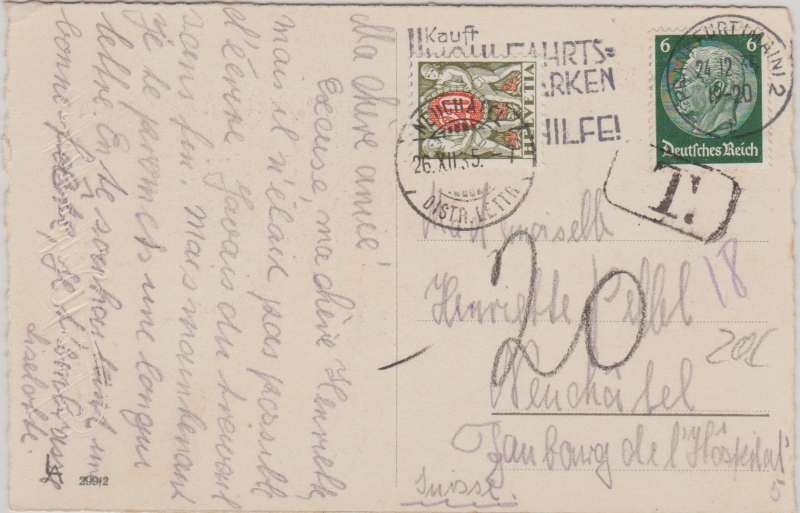 Ma chère amie!
Excuse, ma chère Henriette,
mais il n'était pas possible
d'écrire. J'avais du travail
sans fin. Mais maintenant
je te promets une longue
lettre. En te souhaitant une
bonne fête, je t'embrasse
Liselotte.
299/2
Kauft
FAHRTS=
ARKEN
HILFE!
HELVETIA
NEUCHATEL
26.XII.35.
DISTR. LETTR.
6 6
Deutsches Reich
FRANKFURT (MAIN) 2
24.12.35
19-20
T.
Mademoiselle
Henriette
20
18
Neuchâtel
Faubourg de l'Hôspital
Suisse.